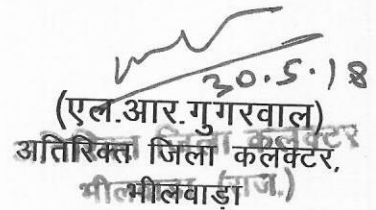 30.5.18
(एल.आर.गुगरवाल)
अतिरिक्त जिला कलक्टर,
भीलवाड़ा
अतिरिक्त जिला कलेक्टर
(राज.)